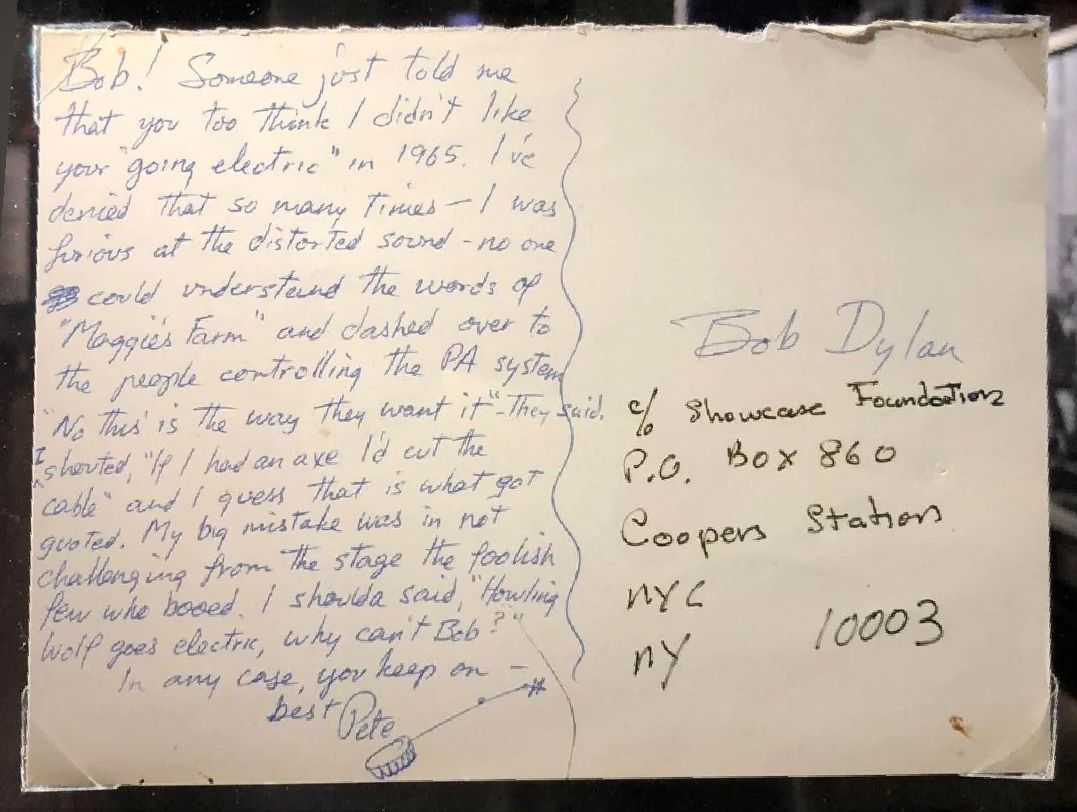 Bob! Someone just told me
that you too think I didn't like
your "going electric" in 1965. I've
denied that so many times – I was
furious at the distorted sound – no one
could understand the words of
"Maggie's Farm" and dashed over to
the people controlling the PA system
"No this is the way they want it" – They said.
I shouted, "If I had an axe I'd cut the
cable" and I guess that is what got
quoted. My big mistake was in not
challenging from the stage the foolish
few who booed. I shoulda said, "Howling
Wolf goes electric, why can't Bob?"
In any case, you keep on –
best Pete
Bob Dylan
c/o Showcase Foundation
P.O. Box 860
Coopers Station
NYC
NY 10003